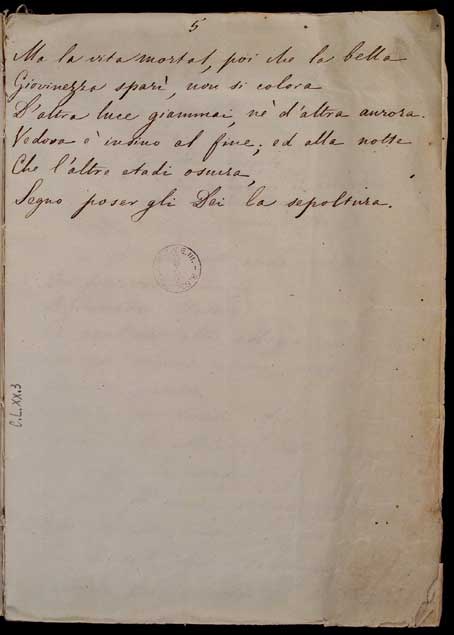 5
Ma la vita mortal, poi che la bella
Giovinezza sparì, non si colora
D'altra luce giammai, nè d'altra aurora.
Vedova è insino al fine; ed alla notte
Che l'altre etadi oscura,
Segno poser gli Dei la sepoltura.
C.L.XX.3